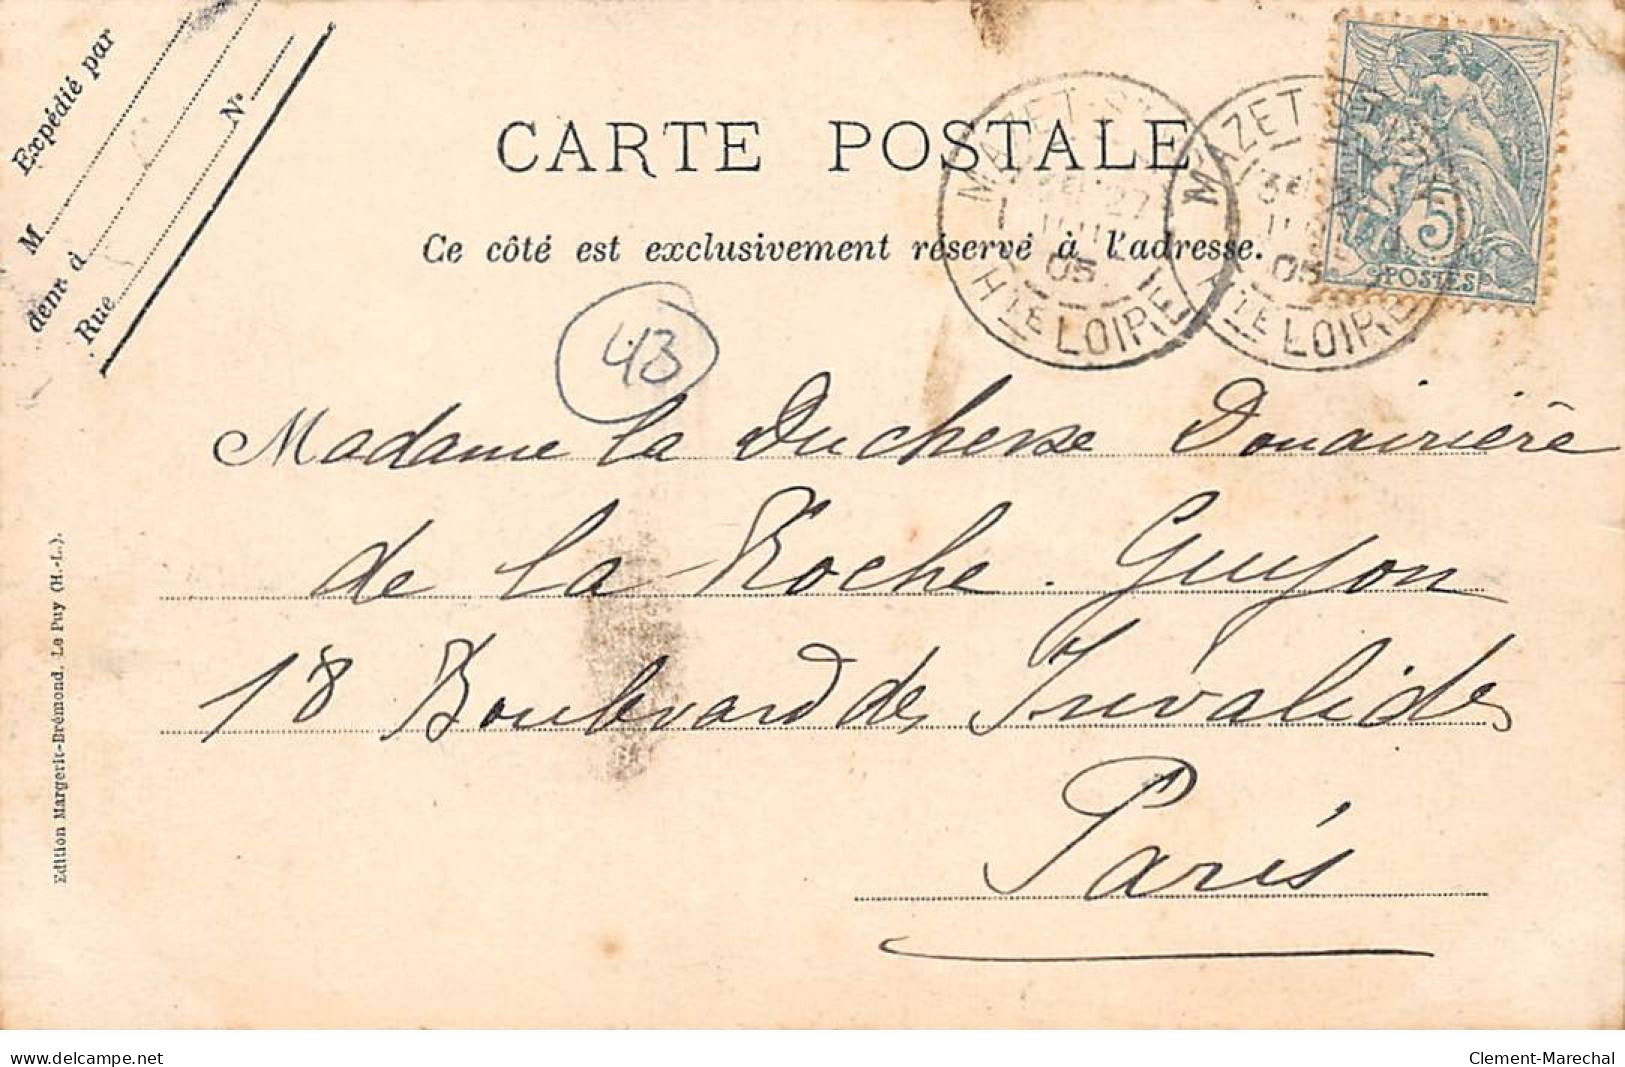 Expédié par
M
demt à
Rue N°
CARTE POSTALE
Ce côté est exclusivement réservé à l'adresse.
MAZET-ST
3E 27
05
HTE LOIRE
MAZET-ST
3E
05
HTE LOIRE
5
POSTES
43
Madame la Duchesse Douairière
de la Roche-Guyon
18 Boulevard des Invalides
Paris
Edition Margerit-Brémond, Le Puy (H.-L.).
www.delcampe.net
Clement-Marechal